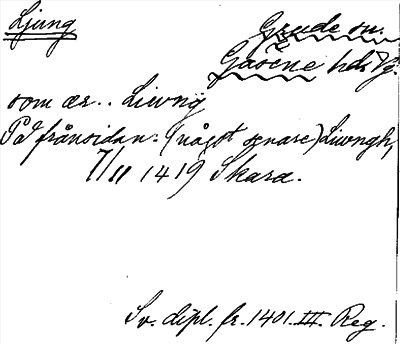 Ljung
Grude sn.
Gäsene hds Vg.
som är.. Liwng
På frånsidan: (något senare) Liwngh,
7/11 1419 Skara.
Sv. dipl. fr. 1401. III. Reg.